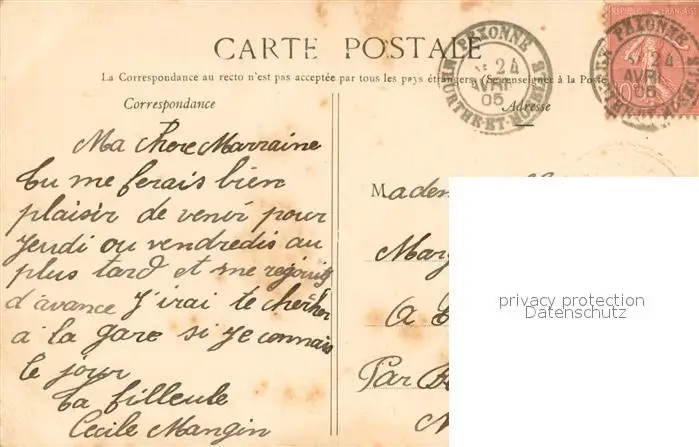 CARTE POSTALE
La Correspondance au recto n'est pas acceptée par tous les pays étrangers. (Se renseigner à la Poste
Correspondance
Adresse
PEXONNE
24
AVRIL
05
MEURTHE-ET-MOSELLE
PEXONNE
24
AVRIL
05
10
Ma chere Marraine
tu me ferais bien
plaisir de venir pour
jeudi ou vendredis au
plus tard et me rejouis
d'avance j'irai te chercher
a la gare si je connais
le jour
ta filleule
Cecile Mangin
Madem
Marg
A
Par
privacy protection
Datenschutz